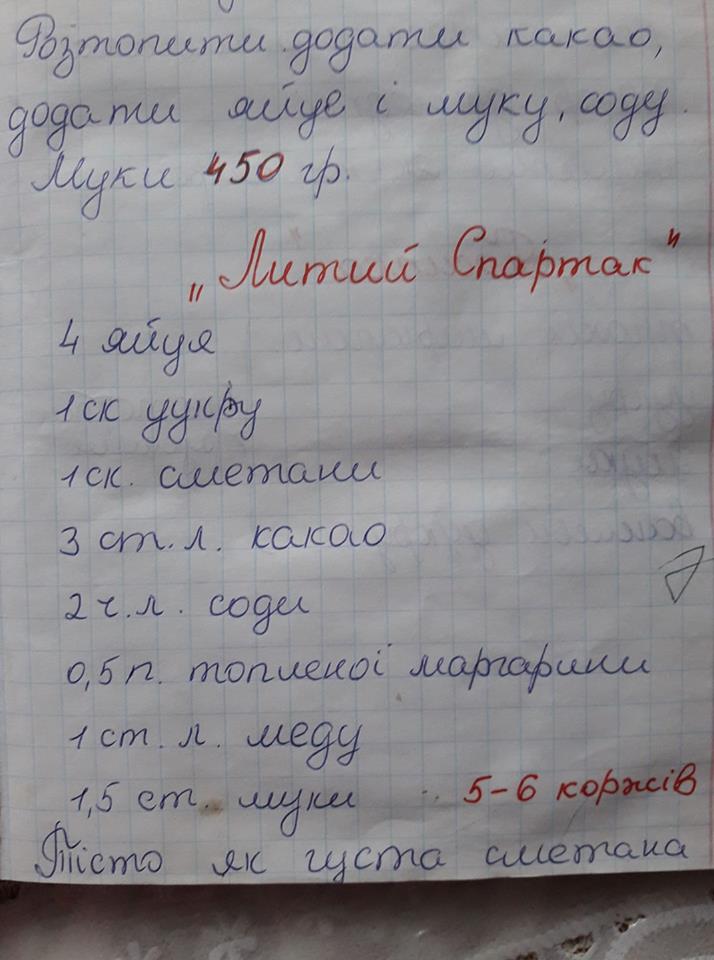 Розтопити додати какао,
додати яйце і муку, соду.
Муки 450 гр.
„Литий Спартак"
4 яйця
1ск цукру
1ск. сметани
3 ст. л. какао
2 ч. л. соди
0,5 п. топленої маргарини
1 ст. л. меду
1,5 ст. муки 5-6 коржів
Тісто як густа сметана